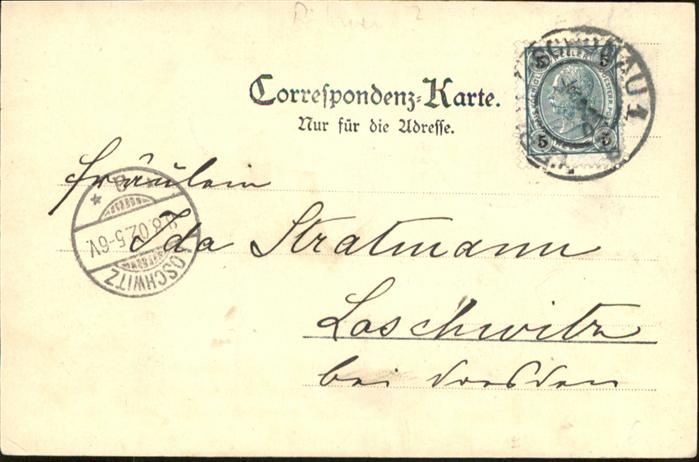 SCHÖNAU 1
5 5
5 5
Correspondenz-Karte.
Nur für die Adresse.
Fräulein
Ida Stratmann
Loschwitz
bei Dresden
LOSCHWITZ
8.02.5-6V.